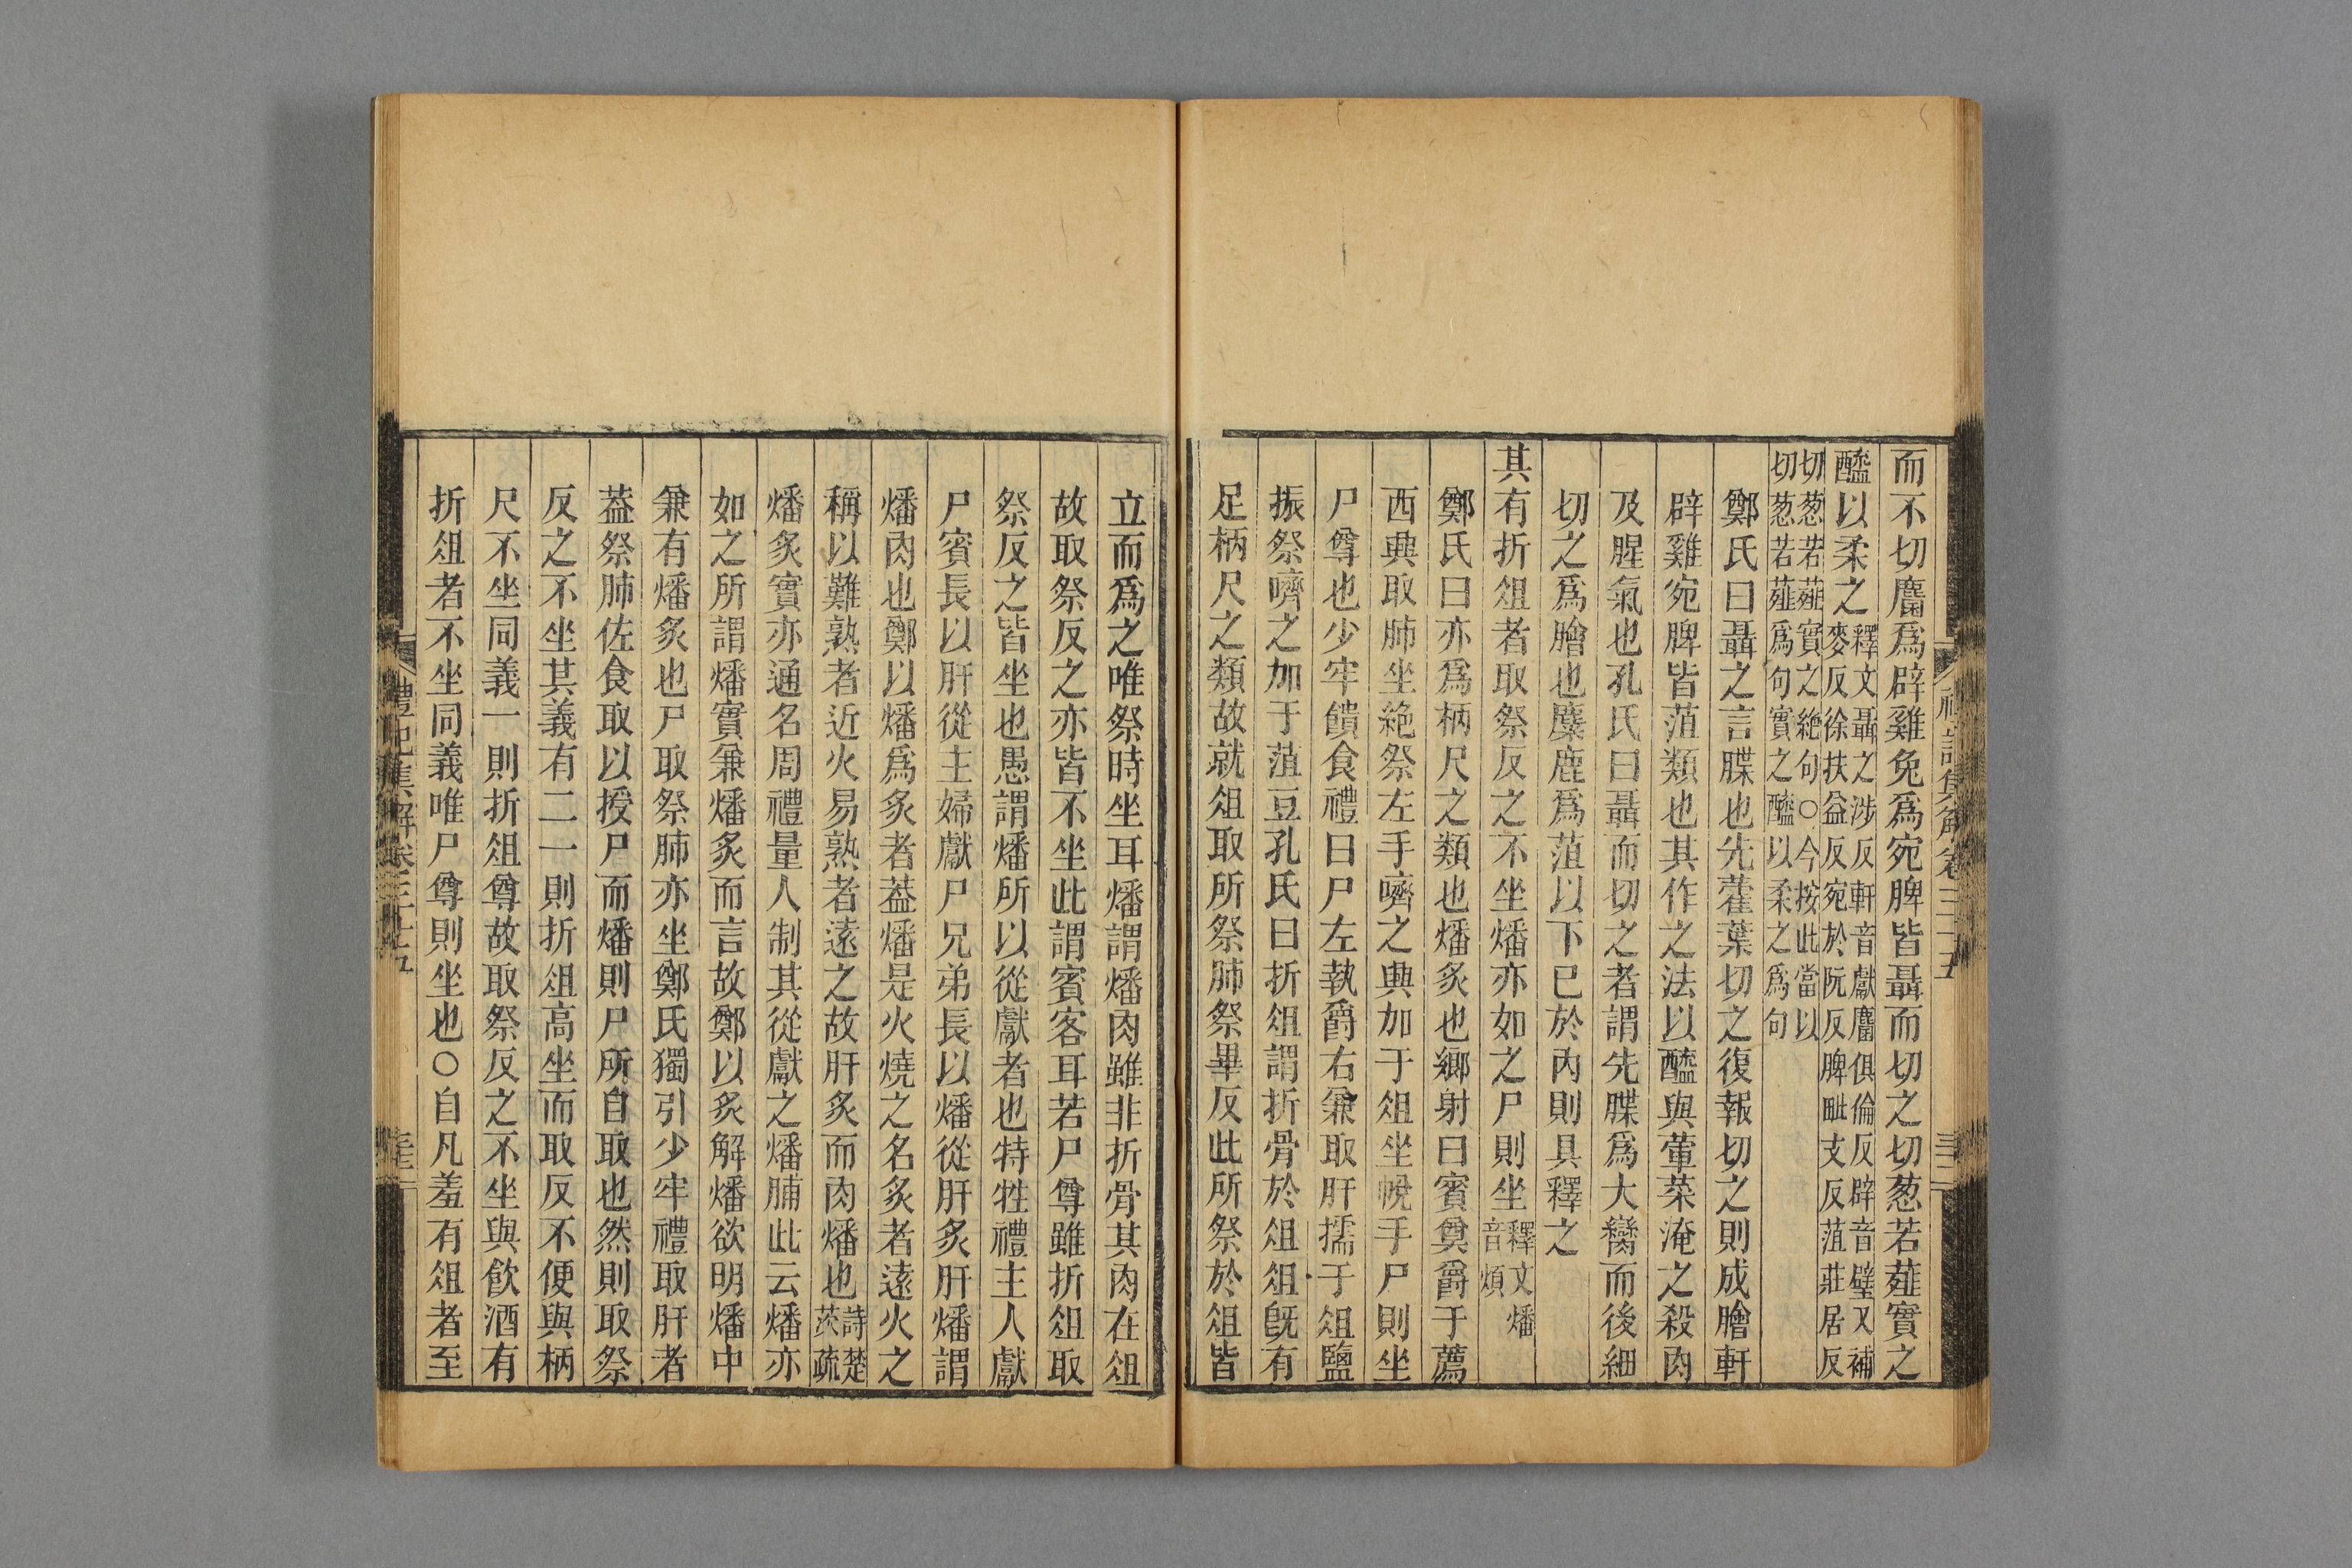 而不切麕爲辟雞兔爲宛脾皆聶而切之切葱若薤實之
醯以柔之釋文聶之涉反軒音獻麕俱倫反辟音璧又補
麥反徐扶益反宛於阮反脾毗支反菹莊居反
切葱若薤實之絶句○今按此當以
切葱若薤爲句實之醯以柔之爲句
鄭氏曰聶之言牒也先藿葉切之復報切之則成膾軒
辟雞宛脾皆菹類也其作之法以醯與葷菜淹之殺肉
及腥氣也孔氏曰聶而切之者謂先牒爲大臠而後細
切之爲膾也麋鹿爲菹以下已於內則具釋之
其有折俎者取祭反之不坐燔亦如之尸則坐釋文燔
音煩
鄭氏曰亦爲柄尺之類也燔炙也鄉射曰賓奠爵于薦
西興取肺坐絶祭左手嚌之興加于俎坐帨手尸則坐
尸尊也少牢饋食禮曰尸左執爵右兼取肝擩于俎鹽
振祭嚌之加于菹豆孔氏曰折俎謂折骨於俎俎旣有
足柄尺之類故就俎取所祭肺祭畢反此所祭於俎皆
禮記集解卷三十五
立而爲之唯祭時坐耳燔謂燔肉雖非折骨其肉在俎
故取祭反之亦皆不坐此謂賓客耳若尸尊雖折俎取
祭反之皆坐也愚謂燔所以從獻者也特牲禮主人獻
尸賓長以肝從主婦獻尸兄弟長以燔從肝炙肝燔謂
燔肉也鄭以燔爲炙者葢燔是火燒之名炙者遠火之
稱以難熟者近火易熟者遠之故肝炙而肉燔也詩楚
茨疏
燔炙實亦通名周禮量人制其從獻之燔脯此云燔亦
如之所謂燔實兼燔炙而言故鄭以炙解燔欲明燔中
兼有燔炙也尸取祭肺亦坐鄭氏獨引少牢禮取肝者
葢祭肺佐食取以授尸而燔則尸所自取也然則取祭
反之不坐其義有二一則折俎高坐而取反不便與柄
尺不坐同義一則折俎尊故取祭反之不坐與飮酒有
折俎者不坐同義唯尸尊則坐也○自凡羞有俎者至
禮記集解卷三十五